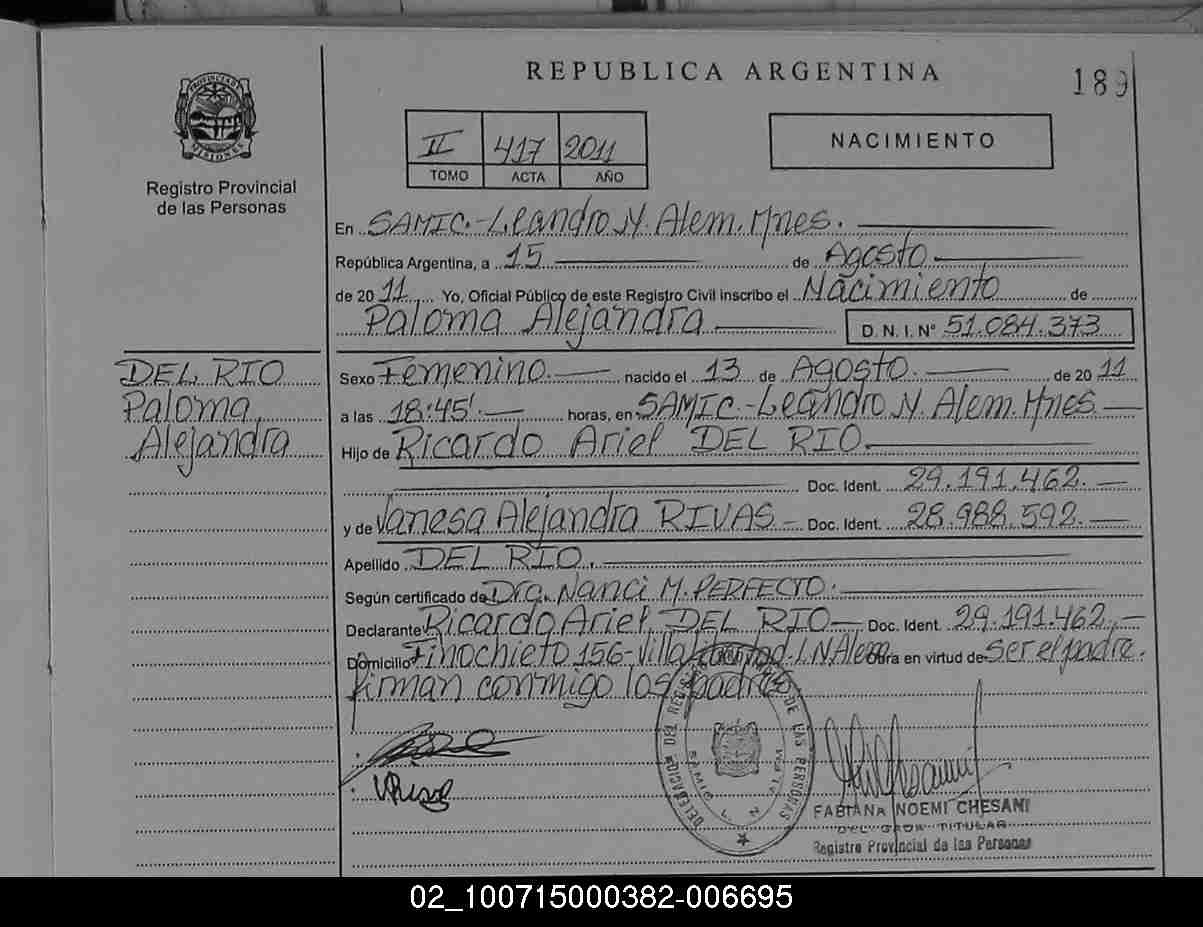 REPUBLICA ARGENTINA
189
PROVINCIA DE MISIONES
Registro Provincial
de las Personas
II 417 2011
TOMO ACTA AÑO
NACIMIENTO
En SAMIC.-Leandro N. Alem. Mnes.
República Argentina, a 15 de Agosto
de 2011 Yo, Oficial Público de este Registro Civil inscribo el Nacimiento de
Paloma Alejandra D. N. I. Nº 51.084.373
DEL RIO
Paloma
Alejandra
Sexo Femenino. nacido el 13 de Agosto. de 2011
a las 18:45' horas, en SAMIC.-Leandro N. Alem. Mnes.
Hijo de Ricardo Ariel DEL RIO.
Doc. Ident. 29.191.462.
y de Vanesa Alejandra RIVAS - Doc. Ident. 28.988.592.
Apellido DEL RIO.
Según certificado de Dra. Nanci M. PERFECTO.
Declarante Ricardo Ariel DEL RIO Doc. Ident. 29.191.462.
Domicilio Finochieto 156- Villa L.N Alem Obra en virtud de ser el padre.
firman conmigo los padres
DELEGACION DEL REGISTRO DE LAS PERSONAS
SAMIC L. N. ALEM
FABIANA NOEMI CHESANI
TITULAR
Registro Provincial de las Personas
02_100715000382-006695